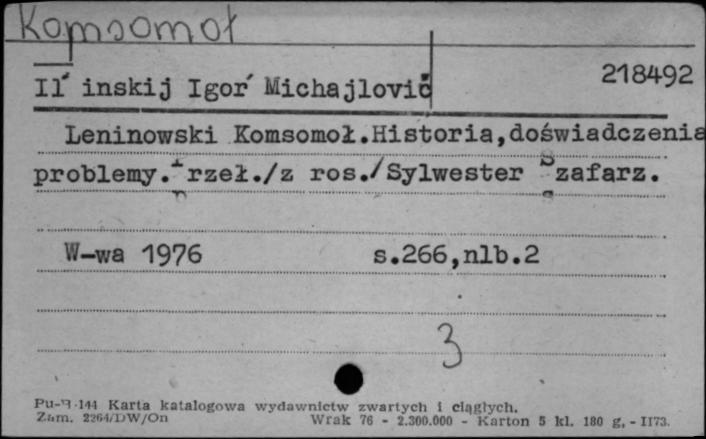 Komsomoł
Il'inskij Igor' Michajlovič
218492
Leninowski Komsomoł.Historia,doświadczenia
problemy.Przeł./z ros./Sylwester Szafarz.
W-wa 1976 s.266,nlb.2
3
Pu-144 Karta katalogowa wydawnictw zwartych i ciągłych.
Zam. 2264/DW/On Wrak 76 - 2.300.000 - Karton 5 kl. 180 g, - II73.